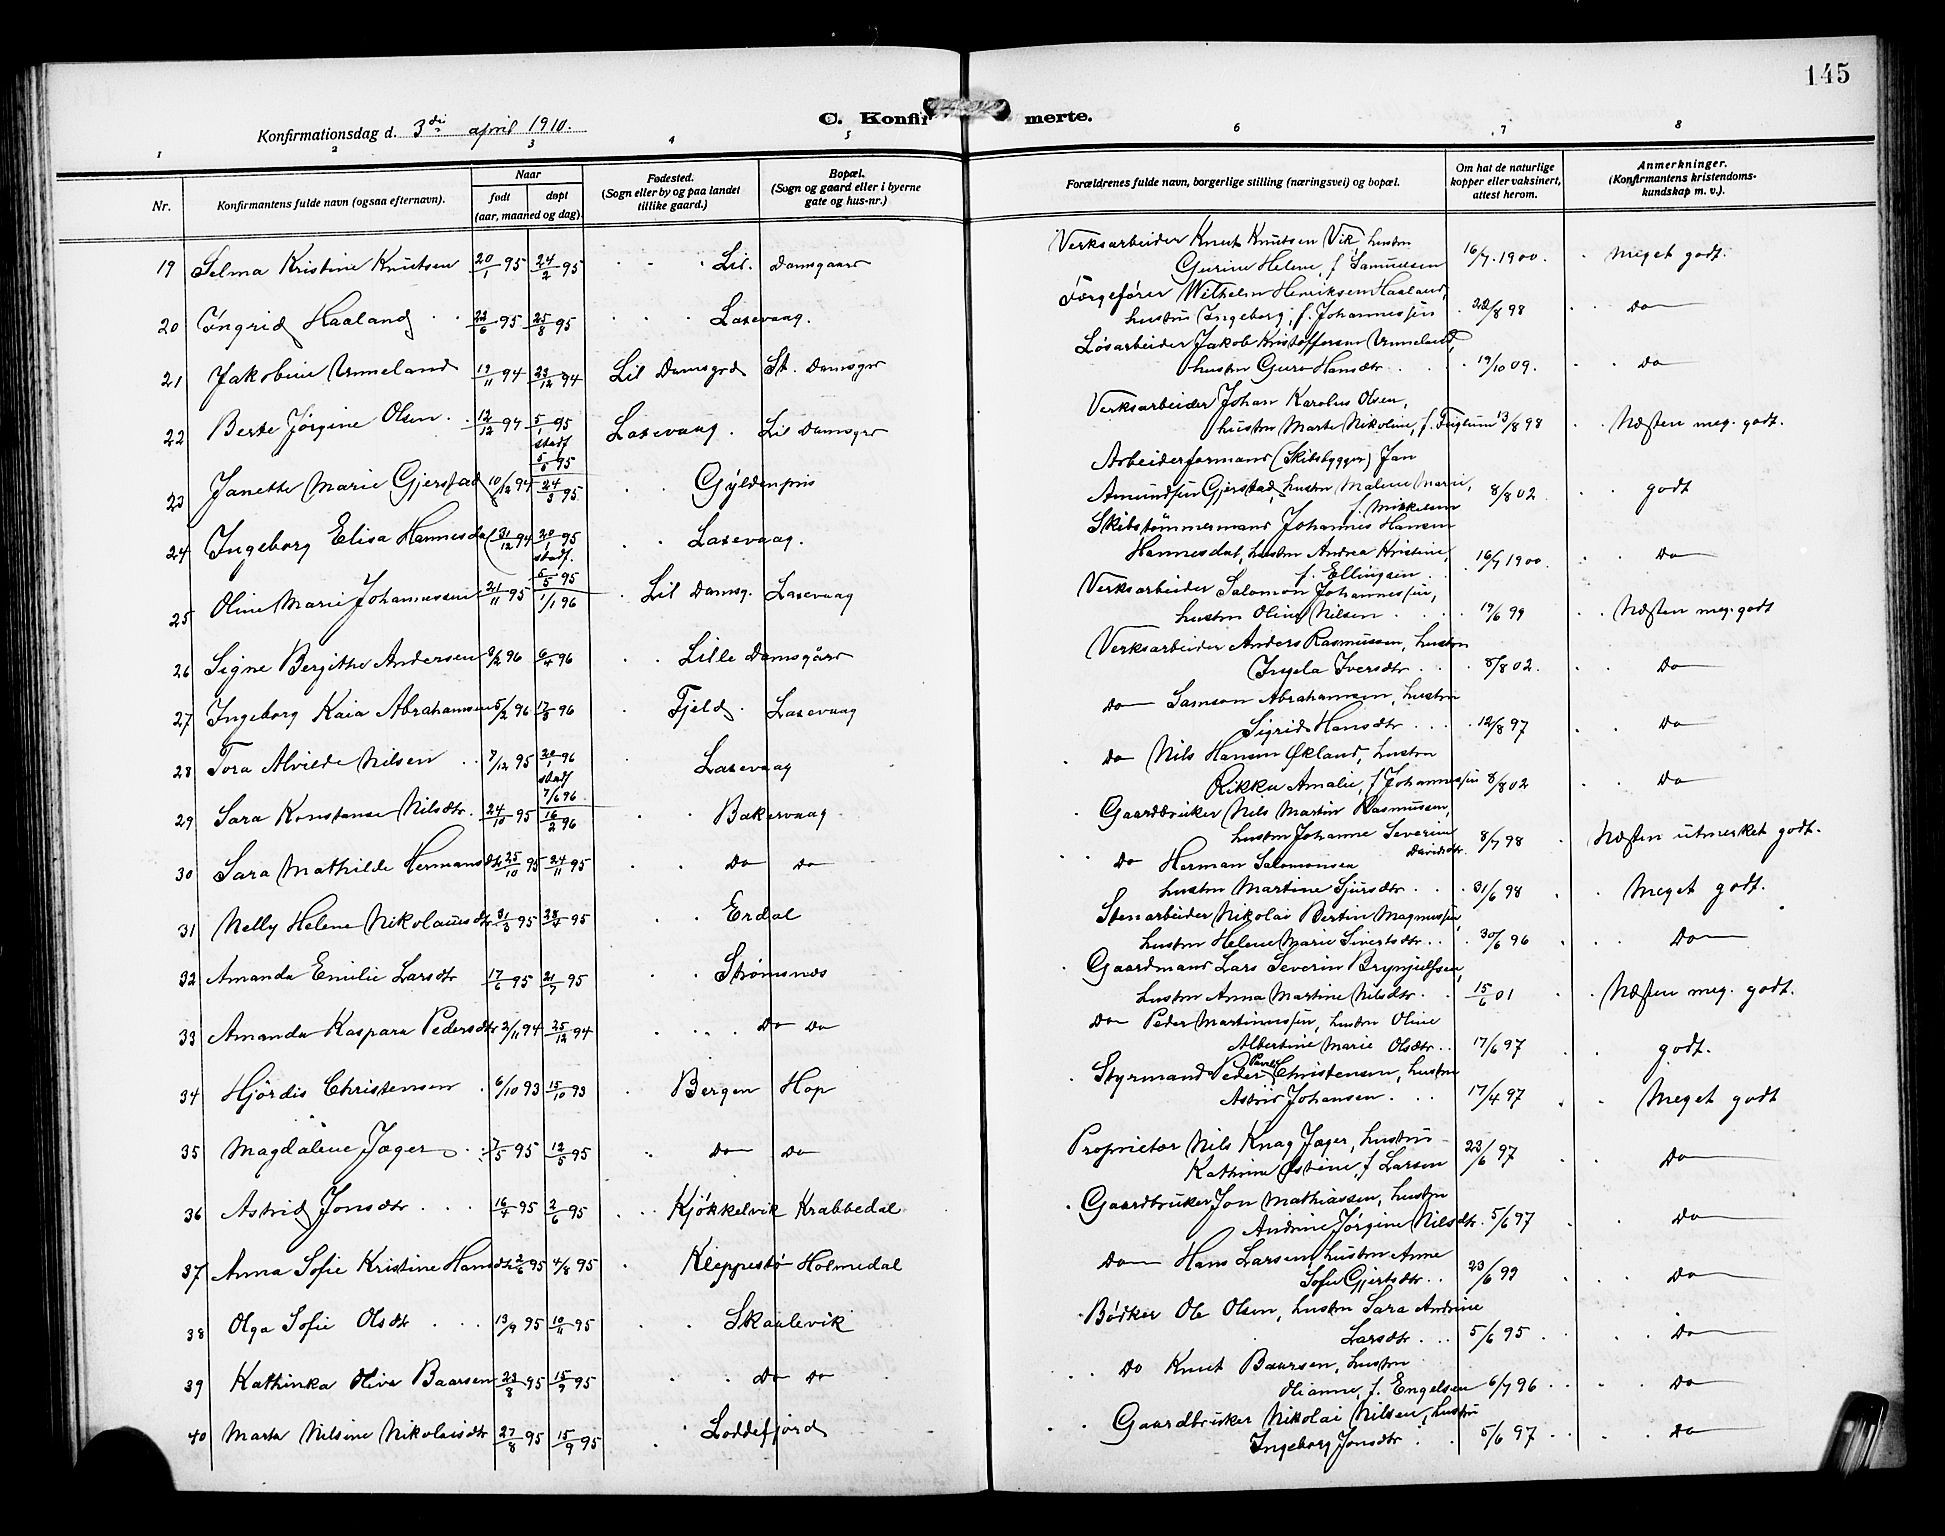 145
C. Konfirmerte.
Konfirmationsdag d. 3di april 1910.
1 2 3 4 5 6 7 8
Nr. Konfirmantens fulde navn (ogsaa efternavn). Naar født døpt (aar, maaned og dag). Fødested. (Sogn eller by og paa landet tillike gaard.) Bopæl. (Sogn og gaard eller i byerne gate og hus-nr.) Forældrenes fulde navn, borgerlige stilling (næringsvei) og bopæl. Om hat de naturlige kopper eller vaksinert, attest herom. Anmerkninger. (Konfirmantens kristendomskundskap m. v.).
19 Selma Kristine Knutsen 20/1 95 24/2 95 Lil. Damsgaard Verksarbeider Knut Knutsen Vik, hustru 16/7 1900. Meget godt.
Gurine Helene, f. Samuelsen
20 Ingrid Haaland 22/6 95 25/8 95 Laxevaag. Færgefører Wilhelm Henriksen Haaland, 22/8 98 Do
hustru Ingeborg, f. Johannessen
21 Jakobine Unneland 19/11 94 23/12 94 Lil Damsgrd St. Damsgrd Løsarbeider Jakob Kristoffersen Unneland, 19/10 09. Do
hustru Guro Hansdtr
22 Berte Jørgine Olsen 12/12 94 5/1 95 stadf 5/5 95 Laxevaag. Lil Damsgrd Verksarbeider Johan Karolus Olsen,
hustru Marta Nikoline, f. Fuglum 13/8 98 Næsten meg. godt.
23 Janette Marie Gjerstad 10/12 94 24/3 95 Gyldenpris Arbeiderformand (Skibsbygger) Jan
Amundsen Gjerstad, hustru Malene Marie, 8/8 02. godt
f. Mikkelsen
24 Ingeborg Elisa Hannesdal 31/12 94 20/1 95 stadf. 5/5 95 Laxevaag. Skibstømmermand Johannes Hansen
Hannesdal, hustru Andrea Kristine, 16/7 1900. Do
f. Ellingsen
25 Oline Marie Johannessen 21/11 95 1/1 96 Lil Damsg. Laxevaag Verksarbeider Salomon Johannessen,
hustru Oline Nilsen 19/6 99 Næsten meg. godt
26 Signe Bergithe Andersen 9/2 96 6/4 96 Lille Damsgård Verksarbeider Anders Rasmussen, hustru
Ingela Iversdtr 8/8 02. Do
27 Ingeborg Kaia Abrahamsen 5/2 96 17/3 96 Fjeld. Laxevaag Do Samson Abrahamsen, hustru
Sigrid Hansdtr 12/8 97 Do
28 Tora Alvilde Nilsen 7/12 95 20/1 96 stadf 7/6 96 Laxevaag Do Nils Hansen Økland, hustru
Rikka Amalie, f. Johannessen 8/8 02 Do
29 Sara Konstanse Nilsdtr. 24/10 95 16/2 96 Bakervaag Gaardbruker Nils Martin Rasmussen,
hustru Johanne Severine Davidsdtr. 8/7 98 Næsten utmerket godt.
30 Sara Mathilde Hermansdtr 25/10 95 24/11 95 Do Do Do Herman Salomonsen
hustru Martine Sjursdtr 31/6 98 Meget godt.
31 Nelly Helene Nikolausdtr 31/3 95 28/4 95 Erdal Stenarbeider Nikolai Bertin Magnussen,
hustru Helene Marie Sivertsdtr. 30/6 96 Do
32 Amanda Emilie Larsdtr 17/6 95 21/7 95 Strømsnes Gaardmand Lars Severin Brynjulfsen,
hustru Anna Martine Nilsdtr. 15/6 01 Næsten meg. godt.
33 Amanda Kaspara Pedersdtr 2/11 94 25/12 94 Do Do Do Peder Martinussen, hustru Oline
Albertine Marie Olsdtr. 17/6 97 godt.
34 Hjørdis Christensen 6/10 93 15/10 93 Bergen Hop Styrmand Peder Christensen, hustru
Astrid Johansen 17/4 97 Meget godt
35 Magdalene Jæger 7/5 95 12/5 95 Do Do Proprietær Nils Knag Jæger, hustru
Kathrine Østine, f. Larsen 23/6 97 Do
36 Astrid Jonsdtr 16/4 95 2/6 95 Kjøkkelvik Krabbedal Gaardbruker Jon Mathiassen, hustru
Andrine Jørgine Nilsdtr. 5/6 97 Do
37 Anna Sofie Kristine Hansdtr 2/6 95 4/8 95 Kleppestø Holmedal Do Hans Larsen, hustru Anne
Sofie Gjertsdtr. 23/6 99 Do
38 Olga Sofie Olsdtr 13/9 95 10/11 95 Skaalevik Bødker Ole Olsen, hustru Sara Andrine
Larsdtr. 5/6 95 Do
39 Kathinka Oliva Baarsen 23/8 95 15/9 95 Do Do Do Knut Baarsen, hustru
Olianne, f. Engelsen 6/7 96 Do
40 Marta Nilsine Nikolaisdtr 27/8 95 15/9 95 Loddefjord Gaardbruker Nikolai Nilsen, hustru
Ingeborg Jonsdtr 5/6 97 Do